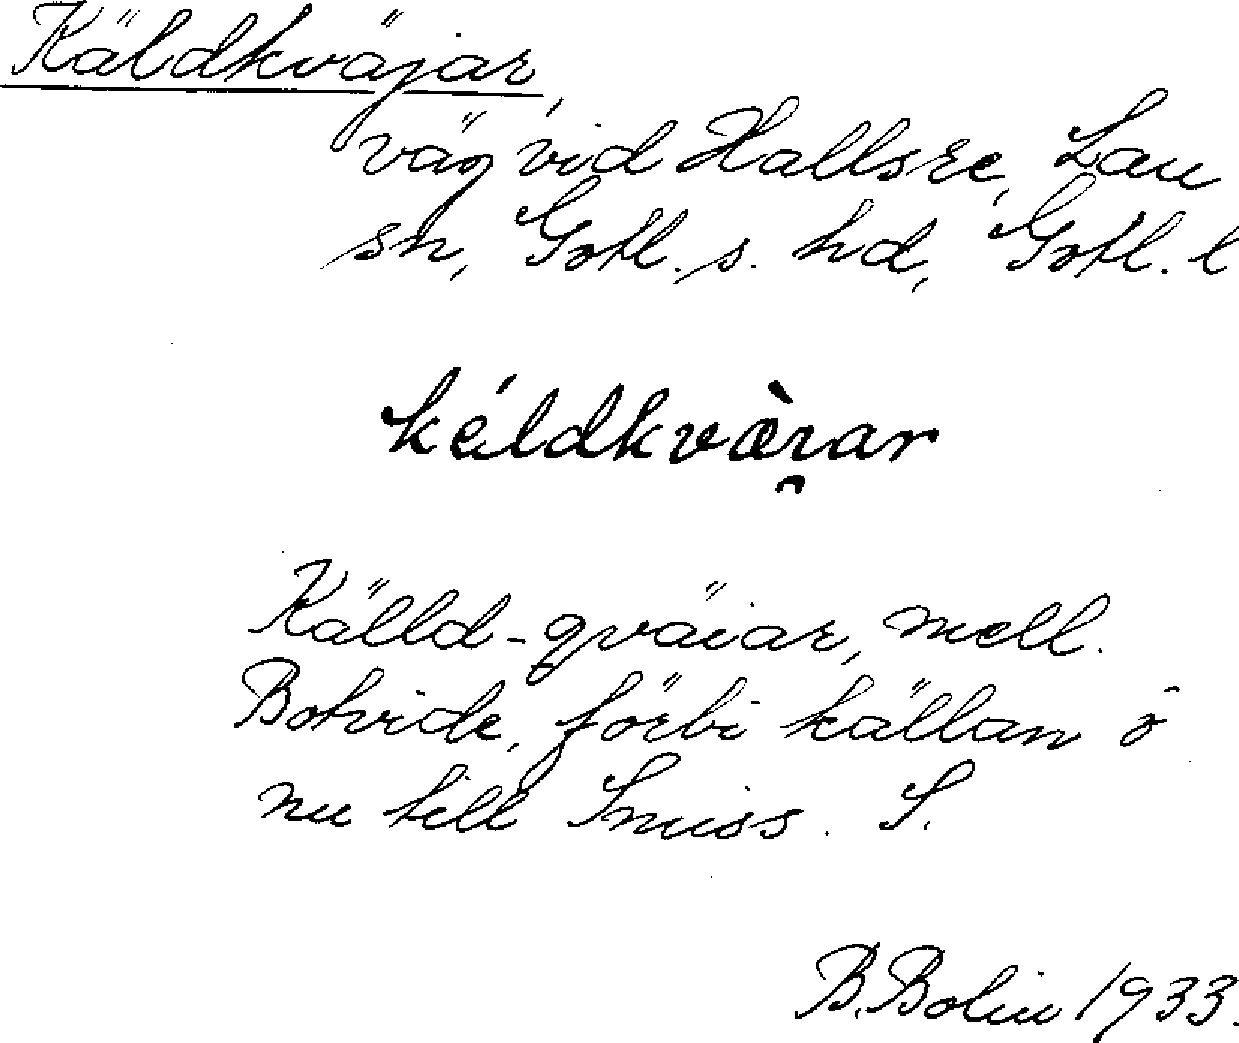 Käldkväjar,
väg vid Hallsre, Lau
sn, Gotl. s. hd, Gotl. l
käldkværar
Källd-qväiar, mell.
Botvide, förbi källan ö
nu till Smiss. S.
B. Bolin 1933.